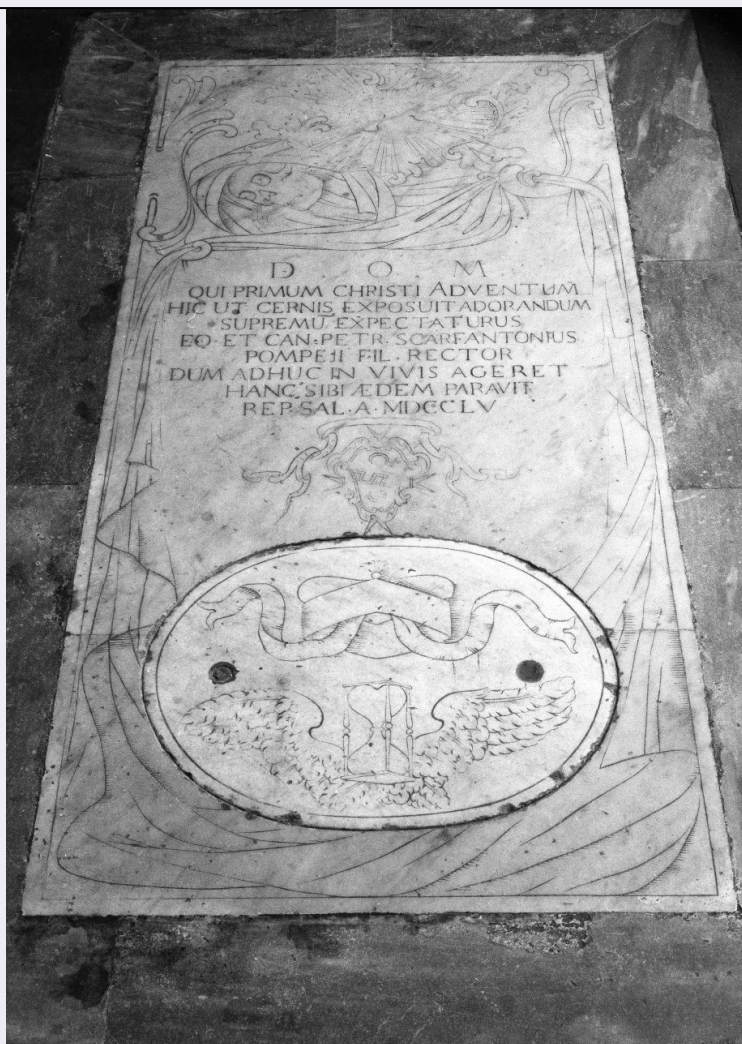 D. O. M.
QUI PRIMUM CHRISTI ADVENTUM
HIC UT CERNIS EXPOSUIT ADORANDUM
SUPREMŪ EXPECTATURUS
EQ. ET CAN. PETR. SCARFANTONIUS
POMPEII FIL. RECTOR
DUM ADHUC IN VIVIS AGERET
HANC SIBI ÆDEM PARAVIT
REP. SAL. A. MDCCLV